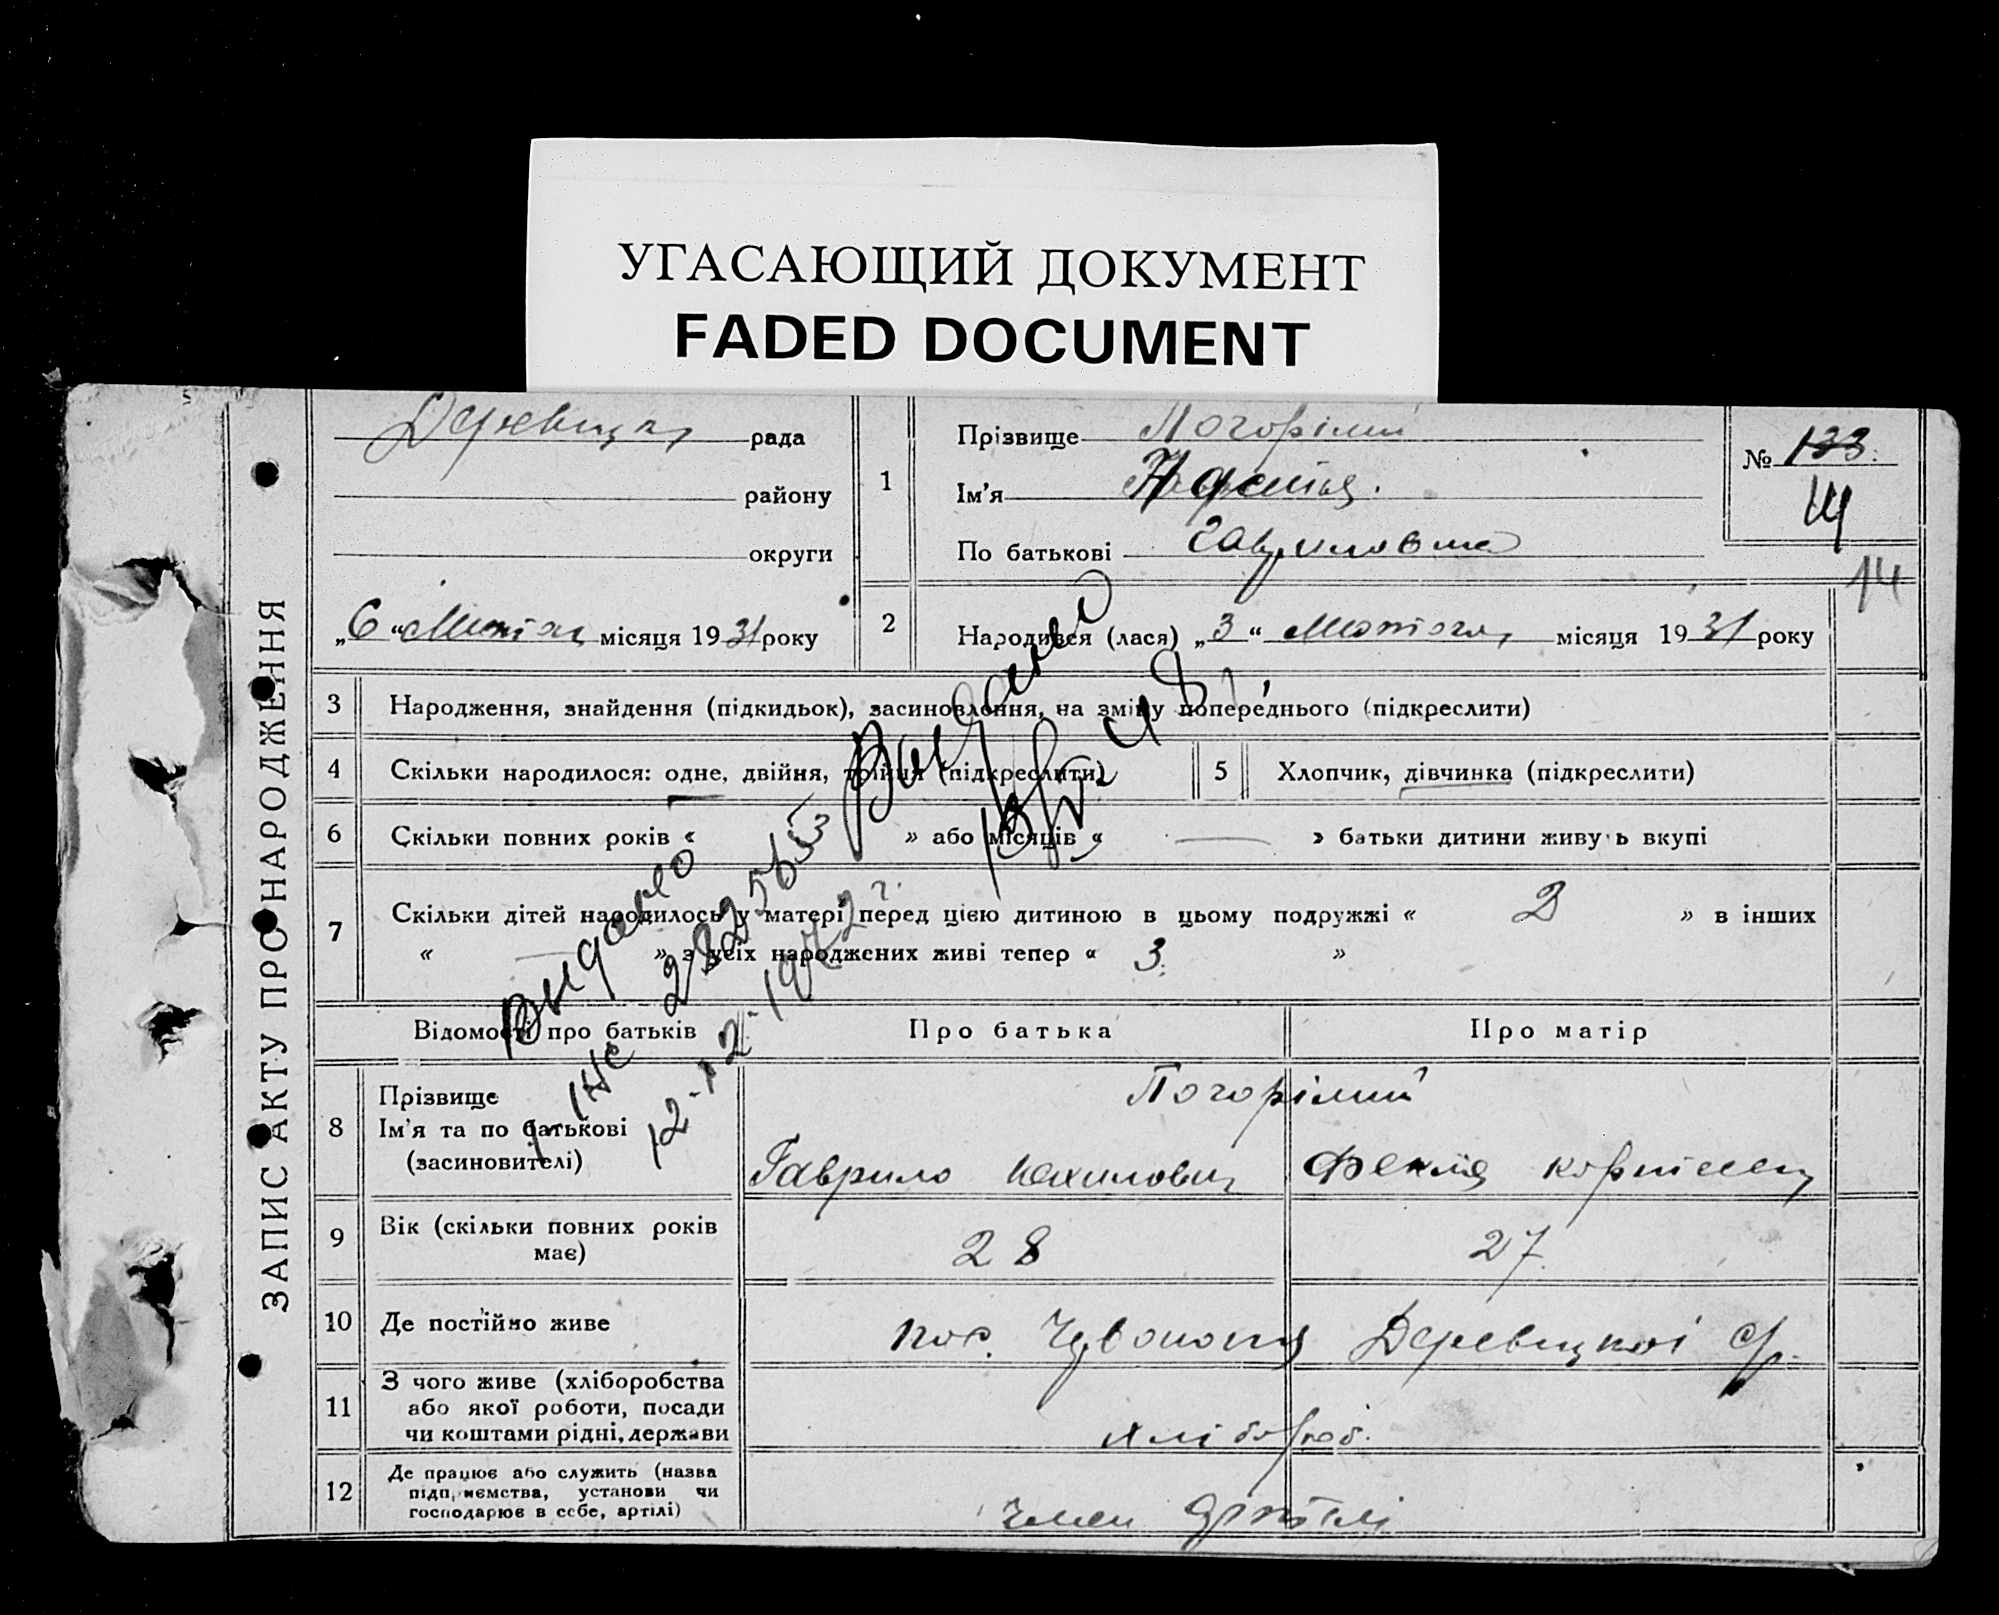 УГАСАЮЩИЙ ДОКУМЕНТ
FADED DOCUMENT
ЗАПИС АКТУ ПРО НАРОДЖЕННЯ
Деревицка рада
району
округи
„6“ місяця 1931 року
1
Прізвище Погорілий
Ім'я Настя.
По батькові Гавриловна
№ 133.
14
2
Народився (лася) „3“ Лютого місяця 1931 року
3 Народження, знайдення (підкидьок), засиновлення, на зміну попереднього (підкреслити)
4 Скільки народилося: одне, двійня, трійня (підкреслити)
5 Хлопчик, дівчинка (підкреслити)
6 Скільки повних років « » або місяців « — » батьки дитини живуть вкупі
7 Скільки дітей народилось у матері перед цією дитиною в цьому подружжі « 2 » в інших
« — » з усіх народжених живі тепер « 3. »
Видано
12-12-1972 г.
Відомості про батьків Про батька Про матір
8 Прізвище
Ім'я та по батькові
(засиновителі)
Погорілий
Гаврило Фекла
9 Вік (скільки повних років має)
28 27
10 Де постійно живе
пос. Деревицкої с/р.
11 З чого живе (хліборобства
або якої роботи, посади
чи коштами рідні, держави
хлібороб.
12 Де працює або служить (назва
підприємства, установи чи
господарює в себе, артілі)
член артілі